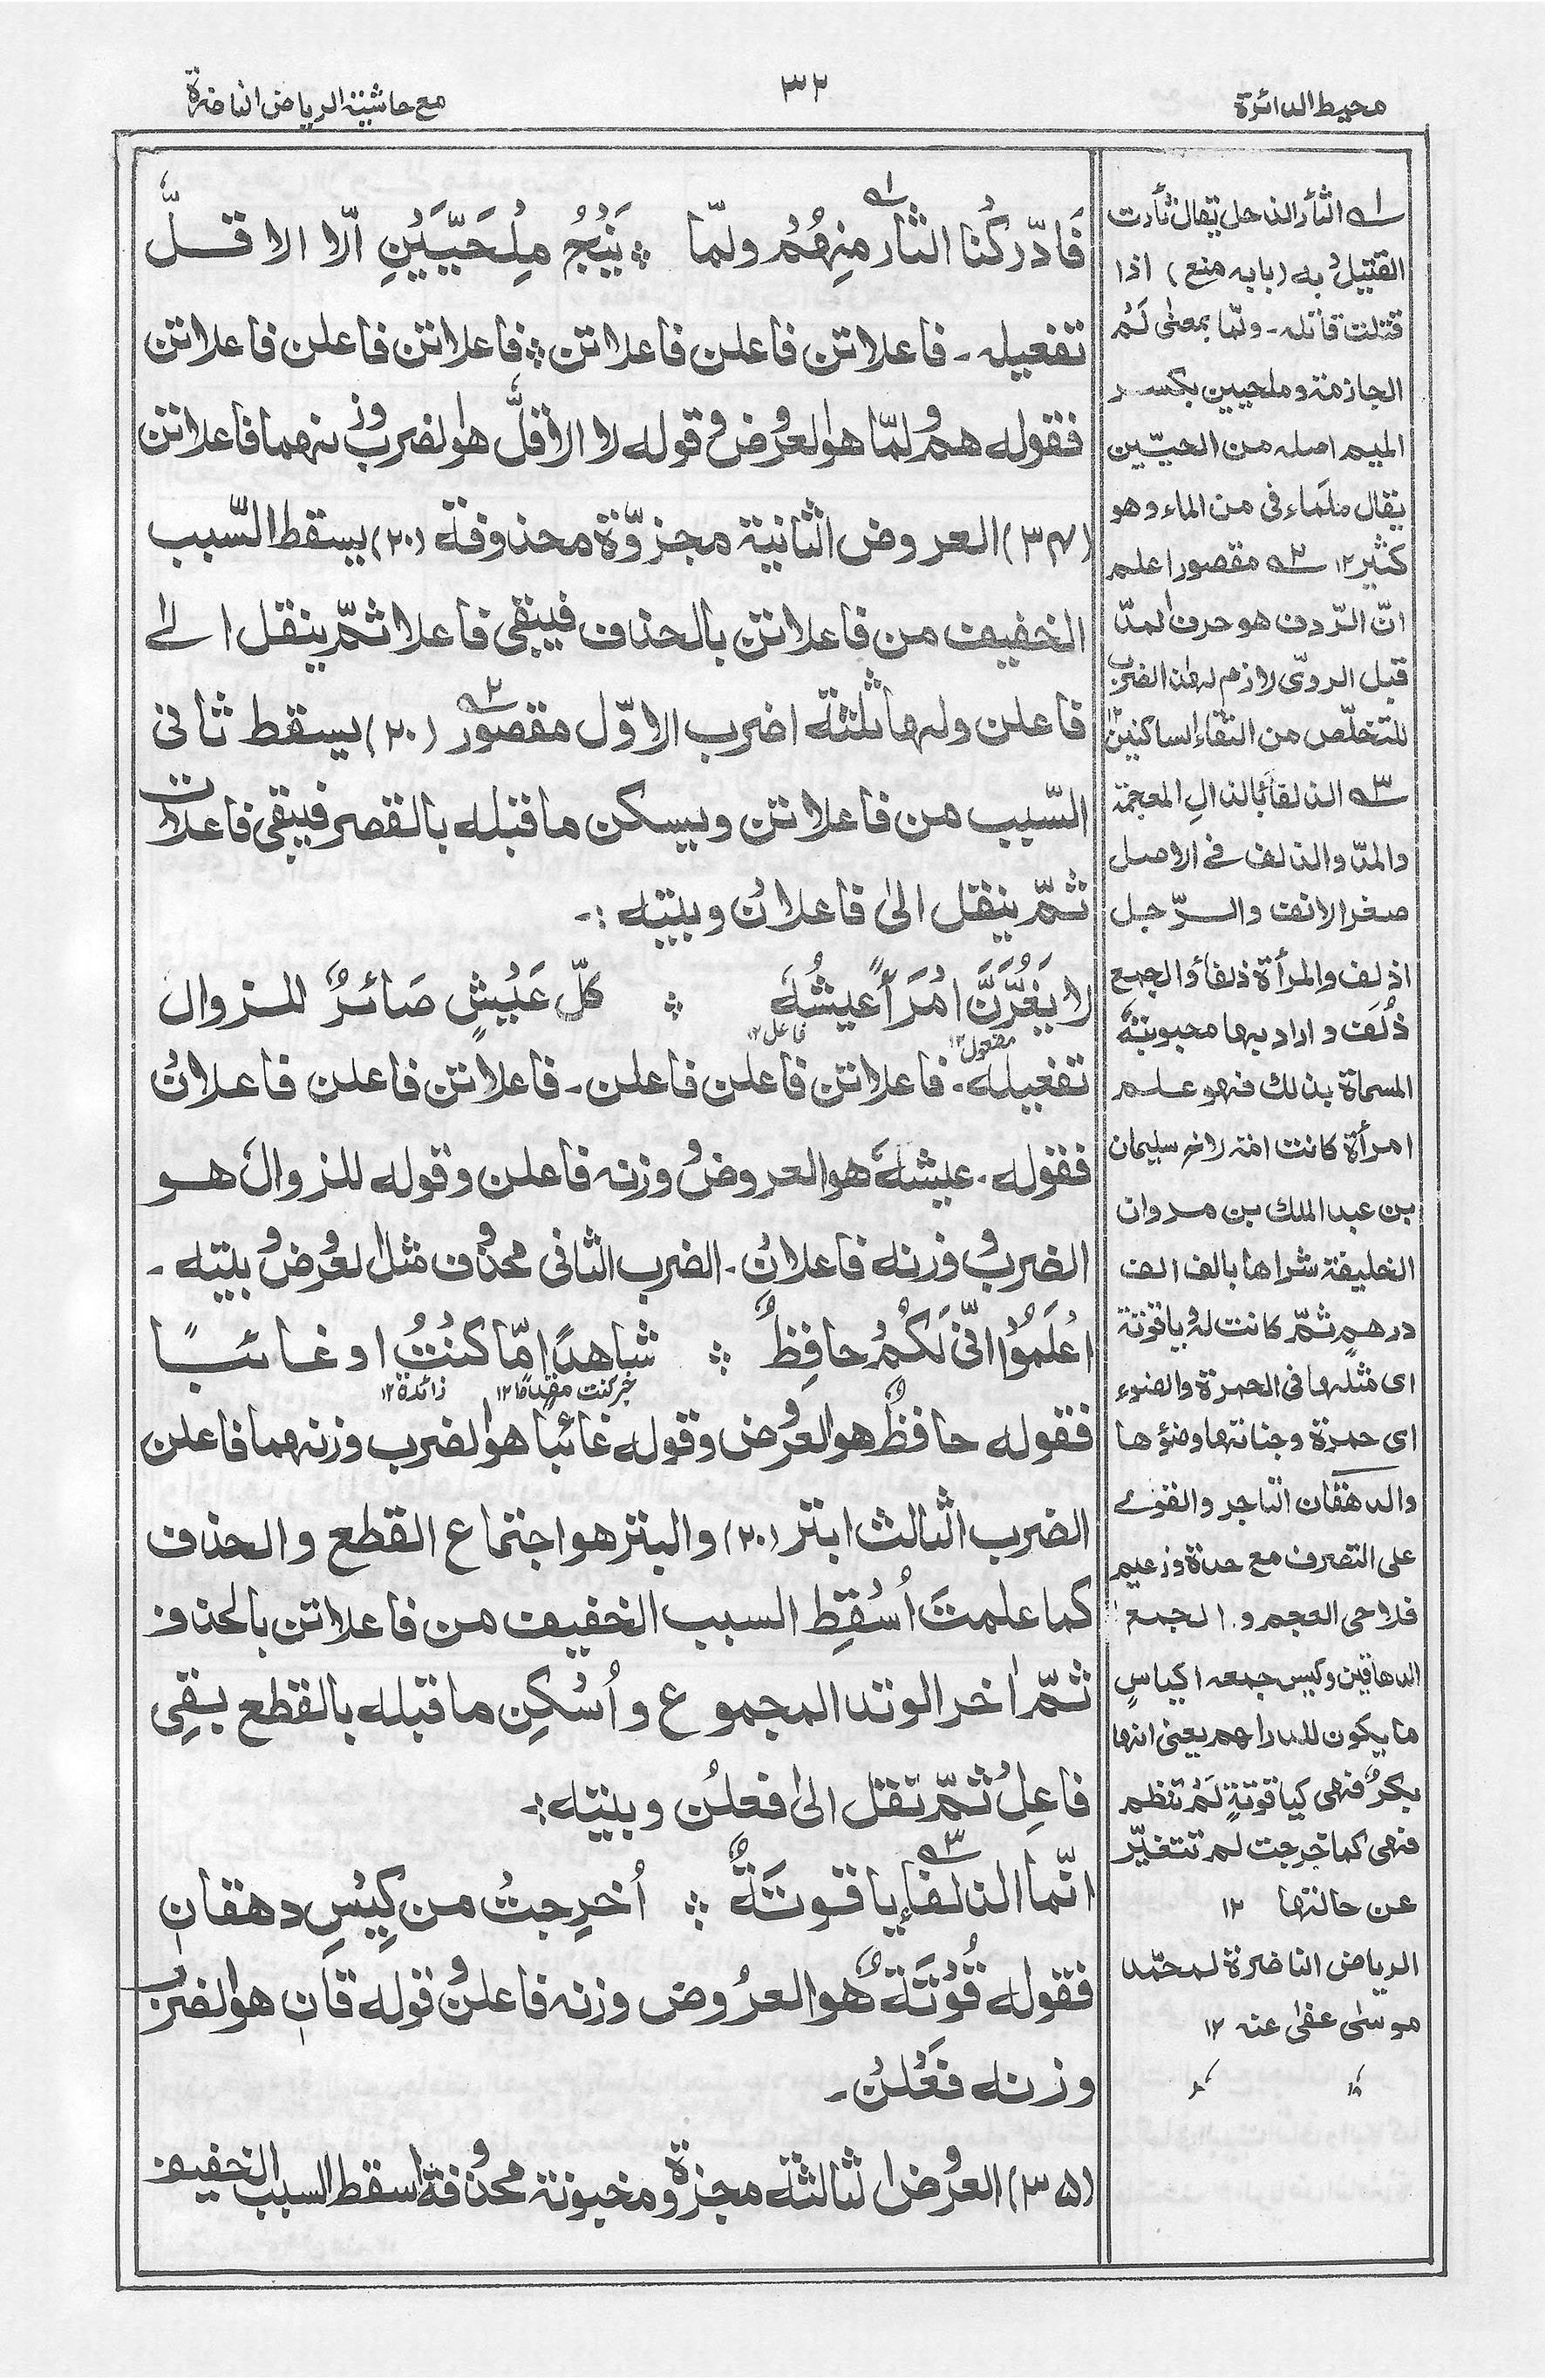 محيط الدائرة
٣٢
مع حاشية الرياض الناضرة
فَادّركْنا الثار١ منِهُمْ ولمّا ⁘ يَنْجُ مِلحَيّيَنِ اِلّا الاقلُّ
تفعيله ـ فاعلاتن فاعلن فاعلاتن ⁘ فاعلاتن فاعلن فاعلاتن
فقوله هم ولمّا هو العروض وقوله لا الاقلُّ هو الضرب وزنهما فاعلاتن
(٣٤) العروض الثانية مجزوّة محذوفة (٢٠) يسقط السّبب
الخفيف من فاعلاتن بالحذف فيبقى فاعلا ثمّ ينقل الى
فاعلن ولها ثلثة اضرب الاوّل مقصور٢ (٢٠) يسقط ثانى
السّبب من فاعلاتن ويسكن ما قبله بالقصر فيبقى فاعلات
ثمّ ينقل الىٰ فاعلانْ وبيته :ـ
لا يَغُرَّنَّ امْرَأً عيشُهٗ ⁘ كلّ عَيْشٍ صَائرٌ للزوال
مفعول١٢ فاعل١٢
تفعيله ـ فاعلاتن فاعلن فاعلن ـ فاعلاتن فاعلن فاعلانْ
فقوله ـ عيشهٗ هو العروضُ وزنه فاعلن وقوله للزوالْ هو
الضرب وزنه فاعلانْ ـ الضرب الثانى محذوف مثل العروض بيته ـ
اعْلَمُوْا انّى لَكُمْ حافِظٌ ⁘ شاهدًا مّا كنْتُ او غائبًا
خبر كنت مقدمًا١٢ زائدة١٢
فقوله حافظٌ هو العروض وقوله غائبًا هو الضرب وزنهما فاعلن
الضرب الثالث ابتر (٢٠) والبتر هو اجتماع القطع والحذف
كما علمتَ اُسْقِطِ السبب الخفيف من فاعلاتن بالحذف
ثمّ اٰخر الوتد المجموع واُسْكِن ما قبله بالقطع بقِى
فاعِلْ ثمّ نقل الىٰ فعلُن وبيته :ـ
انّما الذلفاء٣ ياقوتَةٌ ⁘ اُخرِجتْ من كِيْسِ دهقانِ
فقوله قُوْتَةٌ هو العرُوض وزنه فاعلن وقوله قانِ هو الضرب
وزنه فَعْلنْ ـ
(٣٥) العروض الثالثة مجزوة ومخبونة محذوفة اسقط السبب الخفيف
١ الثأر الذحل يقال ثأرت
القتيلَ به (بابه منع) اذا
قتلت قاتله ـ ولمّا بمعنٰى لَمْ
الجازمة وملحيين بكسر
الميم اصله من الحيّين
يقال ملماء فى من الماء وهو
كثير١٢ ٢ مقصور اعلم
انّ الرّدف هو حرف المدّ
قبل الروىّ لازم لهٰذا الضرب
للتخلّص من التقاء الساكنين
٣ الذلفآءُ بالذالِ المعجمة
والمدّ والذلف فى الاصل
صغر الانف والرّجل
اذلف والمرأة ذلفاءُ والجمع
ذُلَف واراد بها محبوبتهٗ
المسماة بذلك فهو علم
امرأة كانت امة لاخ سليمان
بن عبد الملك بن مروان
الخليفة شراها بالف الف
درهمٍ ثمّ كانت لهٗ ياقوتة
اى مثلها فى الحمرة والضوء
اى حمرة وجناتها وضؤها
والدهقان التاجر والقوى
على التصرف مع حدة وزعيم
فلاحى العجم والجمع
الدهاقين وكيس جمعه اكياسٍ
ما يكون للدراهم يعنى انها
بكرٌ فهى كياقوتةٍ لَمْ تنظم
فهى كما خرجت لم تتغيّر
عن حالتها ١٢
الرياض الناضرة لمحمّد
موسٰى عفى عنه ١٢